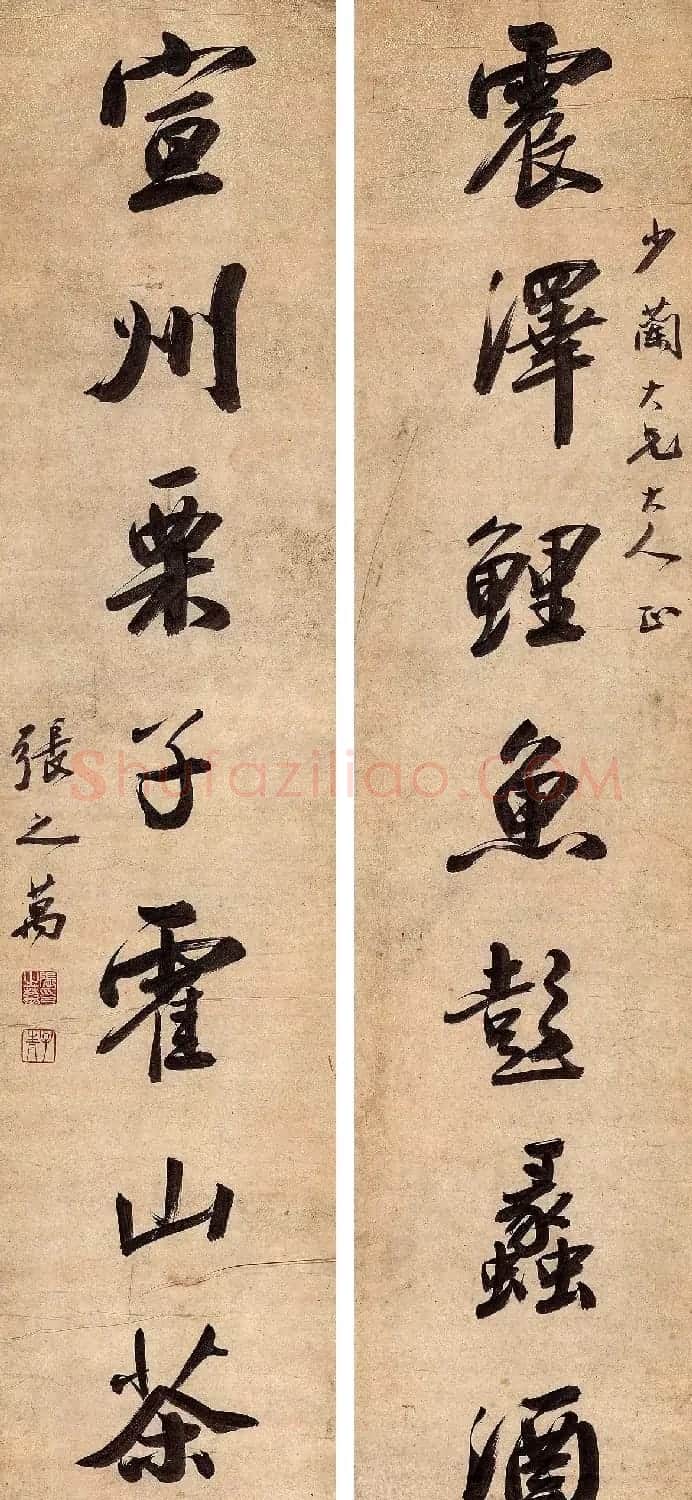 少蘭大兄大人正
震澤鯉魚彭蠡酒
宣州栗子霍山茶
張之萬
張之萬印
子青
Shufaziliao.COM